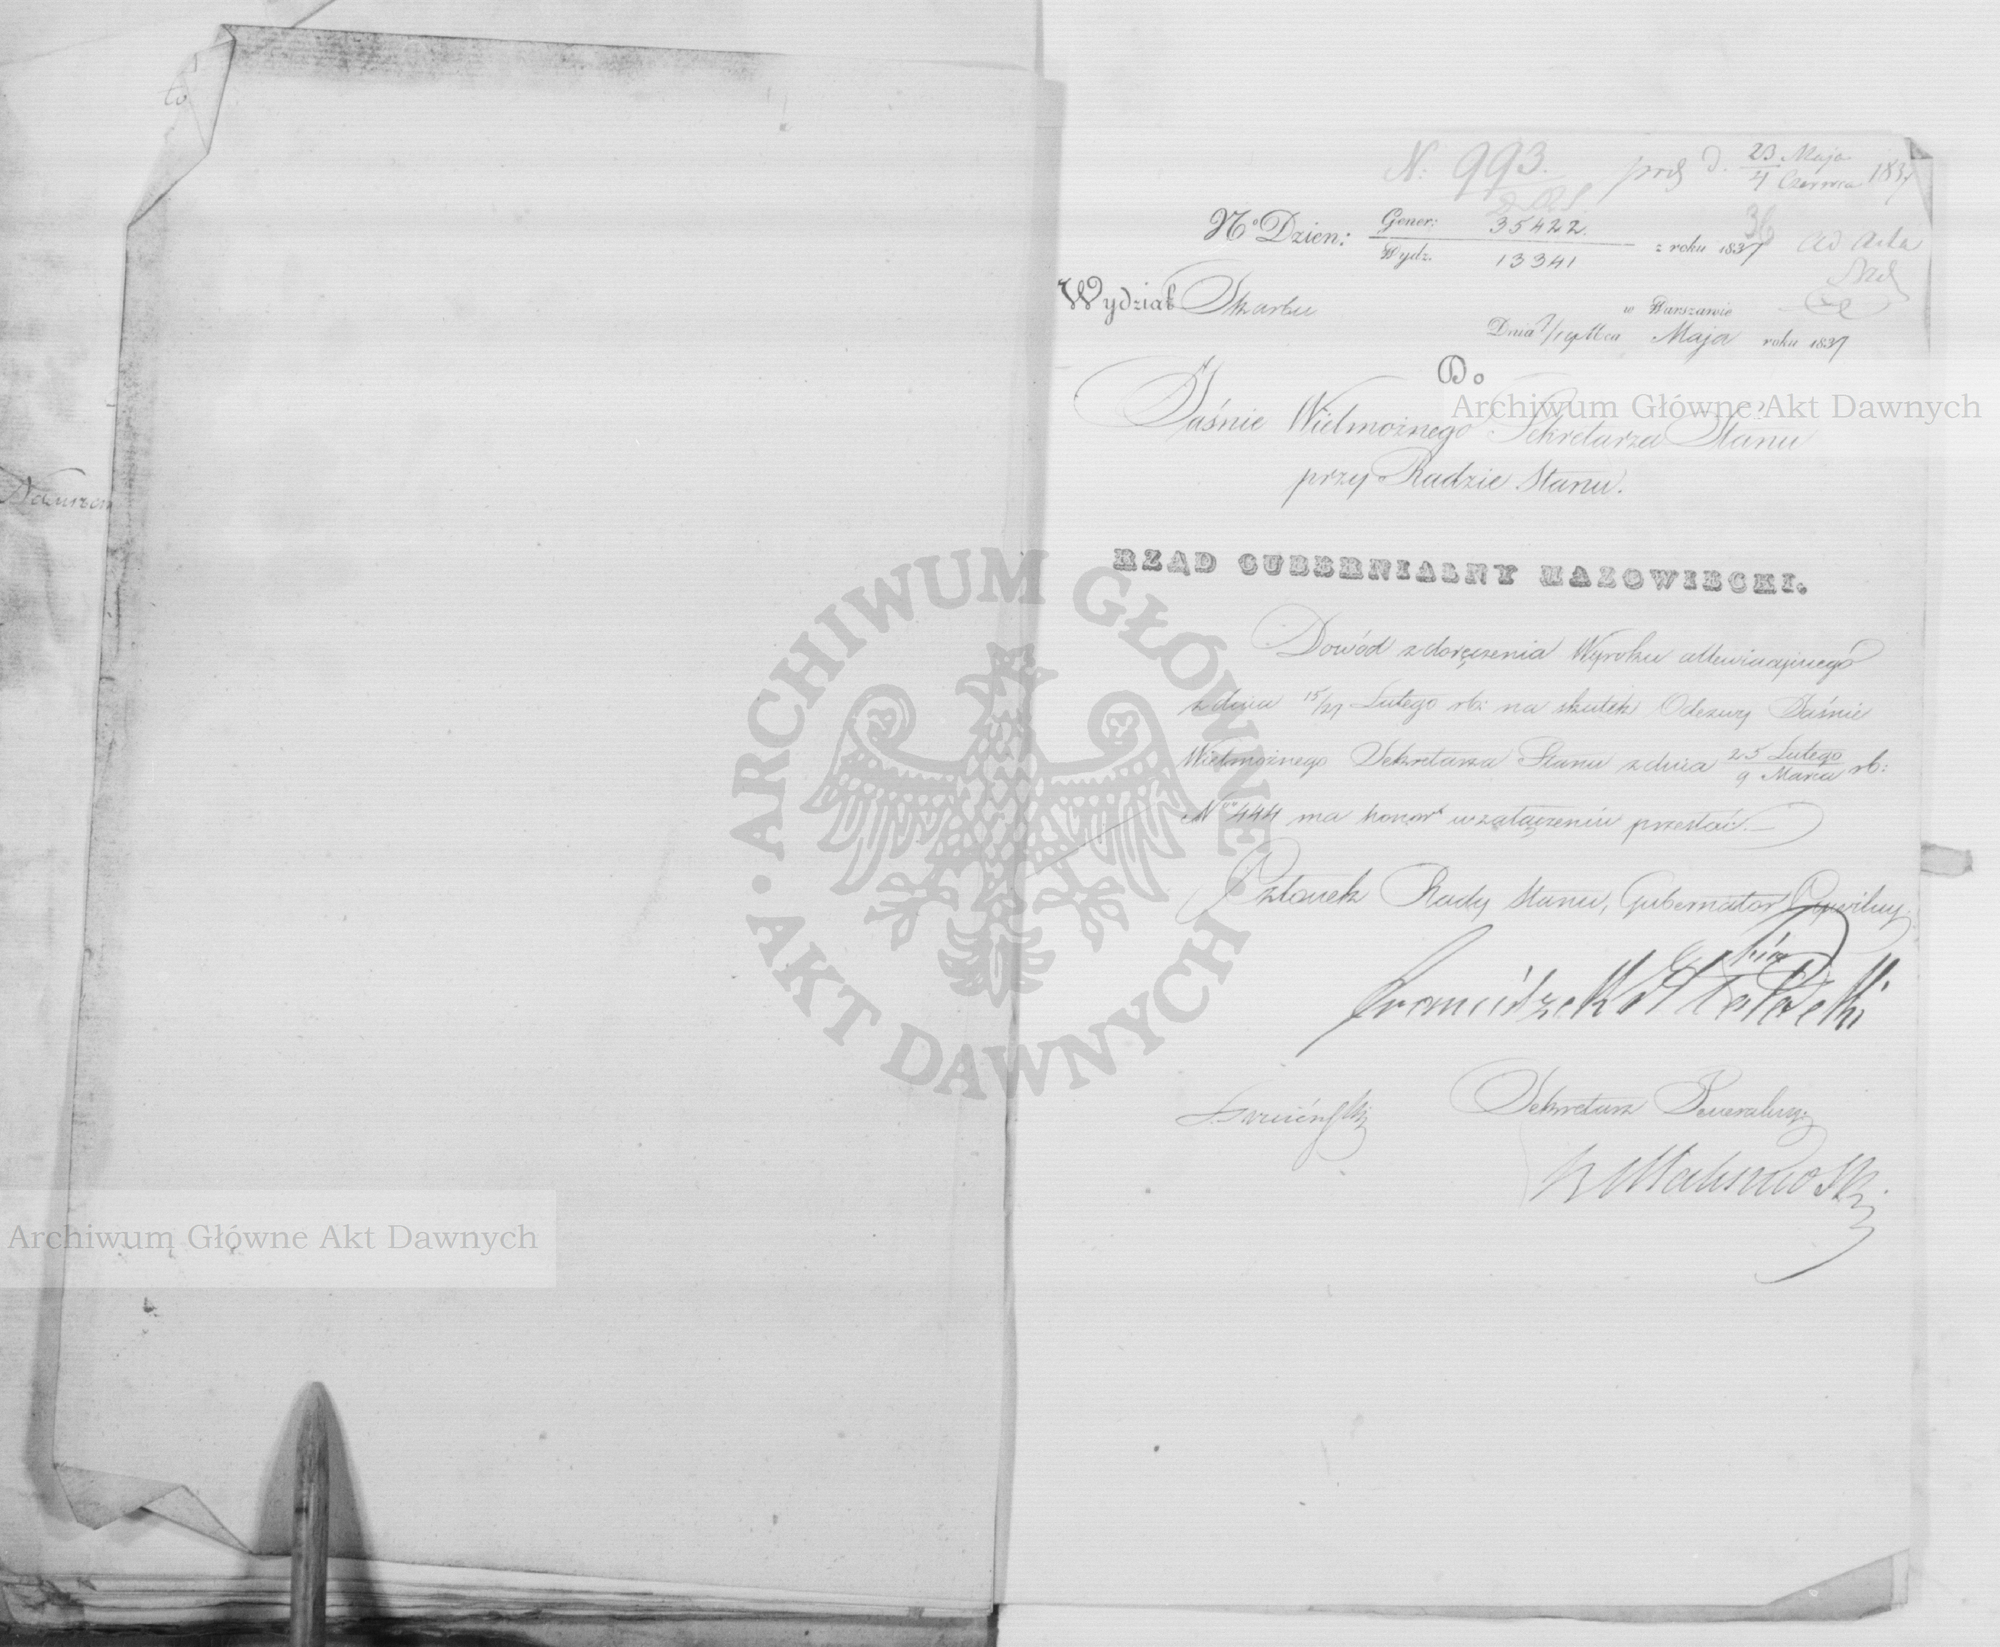 to
N: 993. prod D. 23 Maja / 4 Czerwca 1837
No Dzien: Gener: 35422. / Wydz. 13341 z roku 1837 36 ad acta
Wydział Skarbu
w Warszawie
Dnia 7/19 Mca Maja roku 1837
Do
Jaśnie Wielmożnego Sekretarza Stanu
przy Radzie Stanu.
RZĄD GUBERNIALNY MAZOWIECKI.
Dowód z doręczenia Wyroku attentującego
z dnia 15/27 Lutego rb: na skutek Odezwy Jaśnie
Wielmożnego Sekretarza Stanu z dnia 25 Lutego / 9 Marca rb:
No 444 ma honor w załączeniu przesłać.
Członek Rady Stanu, Gubernator Cywilny.
Franciszek
Sekretarz Generalny
Malinowski
Archiwum Główne Akt Dawnych
Archiwum Główne Akt Dawnych
ARCHIWUM GŁÓWNE AKT DAWNYCH